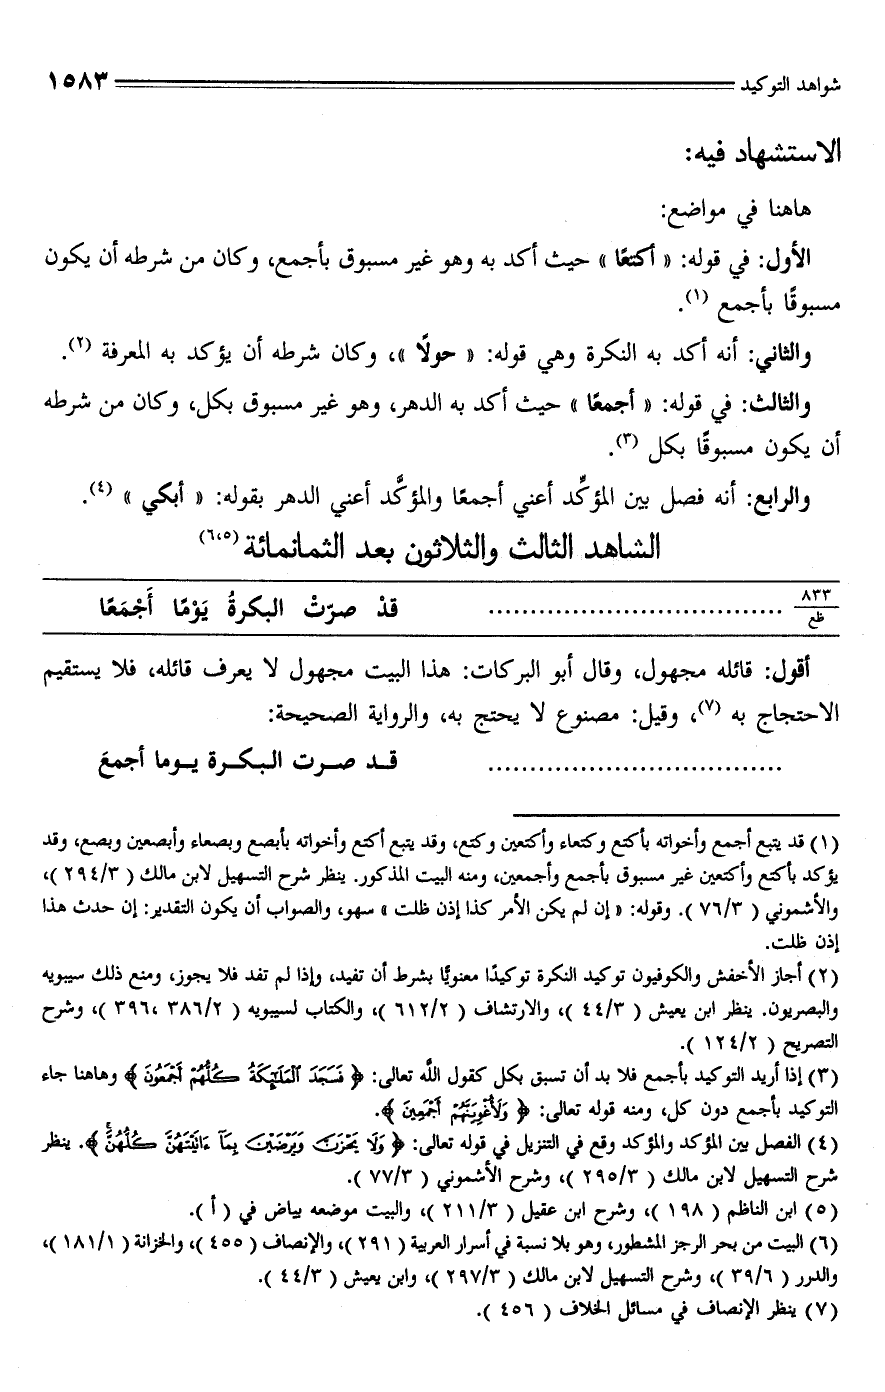 شواهد التوكيد ١٥٨٣
الاستشهاد فيه:
هاهنا في مواضع:
الأول: في قوله: « أكتعًا » حيث أكد به وهو غير مسبوق بأجمع، وكان من شرطه أن يكون
مسبوقًا بأجمع (١).
والثاني: أنه أكد به النكرة وهي قوله: « حولًا »، وكان شرطه أن يؤكد به المعرفة (٢).
والثالث: في قوله: « أجمعًا » حيث أكد به الدهر، وهو غير مسبوق بكل، وكان من شرطه
أن يكون مسبوقًا بكل (٣).
والرابع: أنه فصل بين المؤكِّد أعني أجمعًا والمؤكَّد أعني الدهر بقوله: « أبكي » (٤).
الشاهد الثالث والثلاثون بعد الثمانمائة (٦،٥)
٨٣٣
ظع
.................................. قدْ صرّتْ البكرةُ يَوْمًا أَجْمَعَا
أقول: قائله مجهول، وقال أبو البركات: هذا البيت مجهول لا يعرف قائله، فلا يستقيم
الاحتجاج به (٧)، وقيل: مصنوع لا يحتج به، والرواية الصحيحة:
.................................. قـد صـرت البـكـرة يـومـا أجمعَ
(١) قد يتبع أجمع وأخواته بأكتع وكتعاء وأكتعين وكتع، وقد يتبع أكتع وأخواته بأبصع وبصعاء وأبصعين وبصع، وقد
يؤكد بأكتع وأكتعين غير مسبوق بأجمع وأجمعين، ومنه البيت المذكور. ينظر شرح التسهيل لابن مالك ( ٢٩٤/٣ )،
والأشموني ( ٧٦/٣ ). وقوله: « إن لم يكن الأمر كذا إذن ظلت » سهو، والصواب أن يكون التقدير: إن حدث هذا
إذن ظلت.
(٢) أجاز الأخفش والكوفيون توكيد النكرة توكيدًا معنويًّا بشرط أن تفيد، وإذا لم تفد فلا يجوز، ومنع ذلك سيبويه
والبصريون. ينظر ابن يعيش ( ٤٤/٣ )، والارتشاف ( ٦١٢/٢ )، والكتاب لسيبويه ( ٣٨٦/٢ ،٣٩٦ )، وشرح
التصريح ( ١٢٤/٢ ).
(٣) إذا أريد التوكيد بأجمع فلا بد أن تسبق بكل كقول اللَّه تعالى: ﴿ فَسَجَدَ ٱلْمَلَٰٓئِكَةُ كُلُّهُمْ أَجْمَعُونَ ﴾ وهاهنا جاء
التوكيد بأجمع دون كل، ومنه قوله تعالى: ﴿ وَلَأُغْوِيَنَّهُمْ أَجْمَعِينَ ﴾.
(٤) الفصل بين المؤكد والمؤكد وقع في التنزيل في قوله تعالى: ﴿ وَلَا يَحْزَنَّ وَيَرْضَيْنَ بِمَآ ءَاتَيْتَهُنَّ كُلُّهُنَّ ﴾. ينظر
شرح التسهيل لابن مالك ( ٢٩٥/٣ )، وشرح الأشموني ( ٧٧/٣ ).
(٥) ابن الناظم ( ١٩٨ )، وشرح ابن عقيل ( ٢١١/٣ )، والبيت موضعه بياض في ( أ ).
(٦) البيت من بحر الرجز المشطور، وهو بلا نسبة في أسرار العربية ( ٢٩١ )، والإنصاف ( ٤٥٥ )، والخزانة ( ١٨١/١ )،
والدرر ( ٣٩/٦ )، وشرح التسهيل لابن مالك ( ٢٩٧/٣ )، وابن يعيش ( ٤٤/٣ ).
(٧) ينظر الإنصاف في مسائل الخلاف ( ٤٥٦ ).